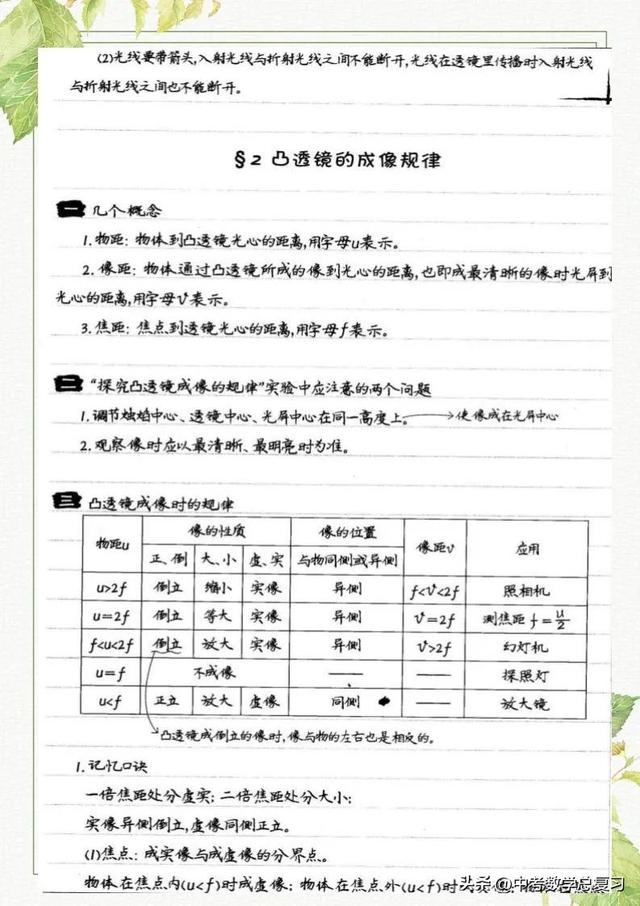 (2)光线要带箭头,入射光线与折射光线之间不能断开,光线在透镜里传播时入射光线
与折射光线之间也不能断开。
§2 凸透镜的成像规律
一 几个概念
1.物距: 物体到凸透镜光心的距离,用字母u表示。
2.像距: 物体通过凸透镜所成的像到光心的距离,也即成最清晰的像时光屏到
光心的距离,用字母v表示。
3.焦距: 焦点到透镜光心的距离,用字母f表示。
二 “探究凸透镜成像的规律”实验中应注意的两个问题
1.调节烛焰中心、透镜中心、光屏中心在同一高度上。→使像成在光屏中心
2.观察像时应以最清晰、最明亮时为准。
三 凸透镜成像时的规律
物距u 像的性质 像的位置 像距v 应用
正、倒 大、小 虚、实 与物同侧或异侧
u>2f 倒立 缩小 实像 异侧 f<v<2f 照相机
u=2f 倒立 等大 实像 异侧 v=2f 测焦距 f=u/2
f<u<2f 倒立 放大 实像 异侧 v>2f 幻灯机
u=f 不成像 —— —— 探照灯
u<f 正立 放大 虚像 同侧 —— 放大镜
凸透镜成倒立的像时,像与物的左右也是相反的。
1.记忆口诀
一倍焦距处分虚实; 二倍焦距处分大小;
实像异侧倒立,虚像同侧正立。
(1)焦点: 成实像与成虚像的分界点。
物体在焦点内(u<f)时成虚像; 物体在焦点外(u<f)时
头条 @中考数学总复习